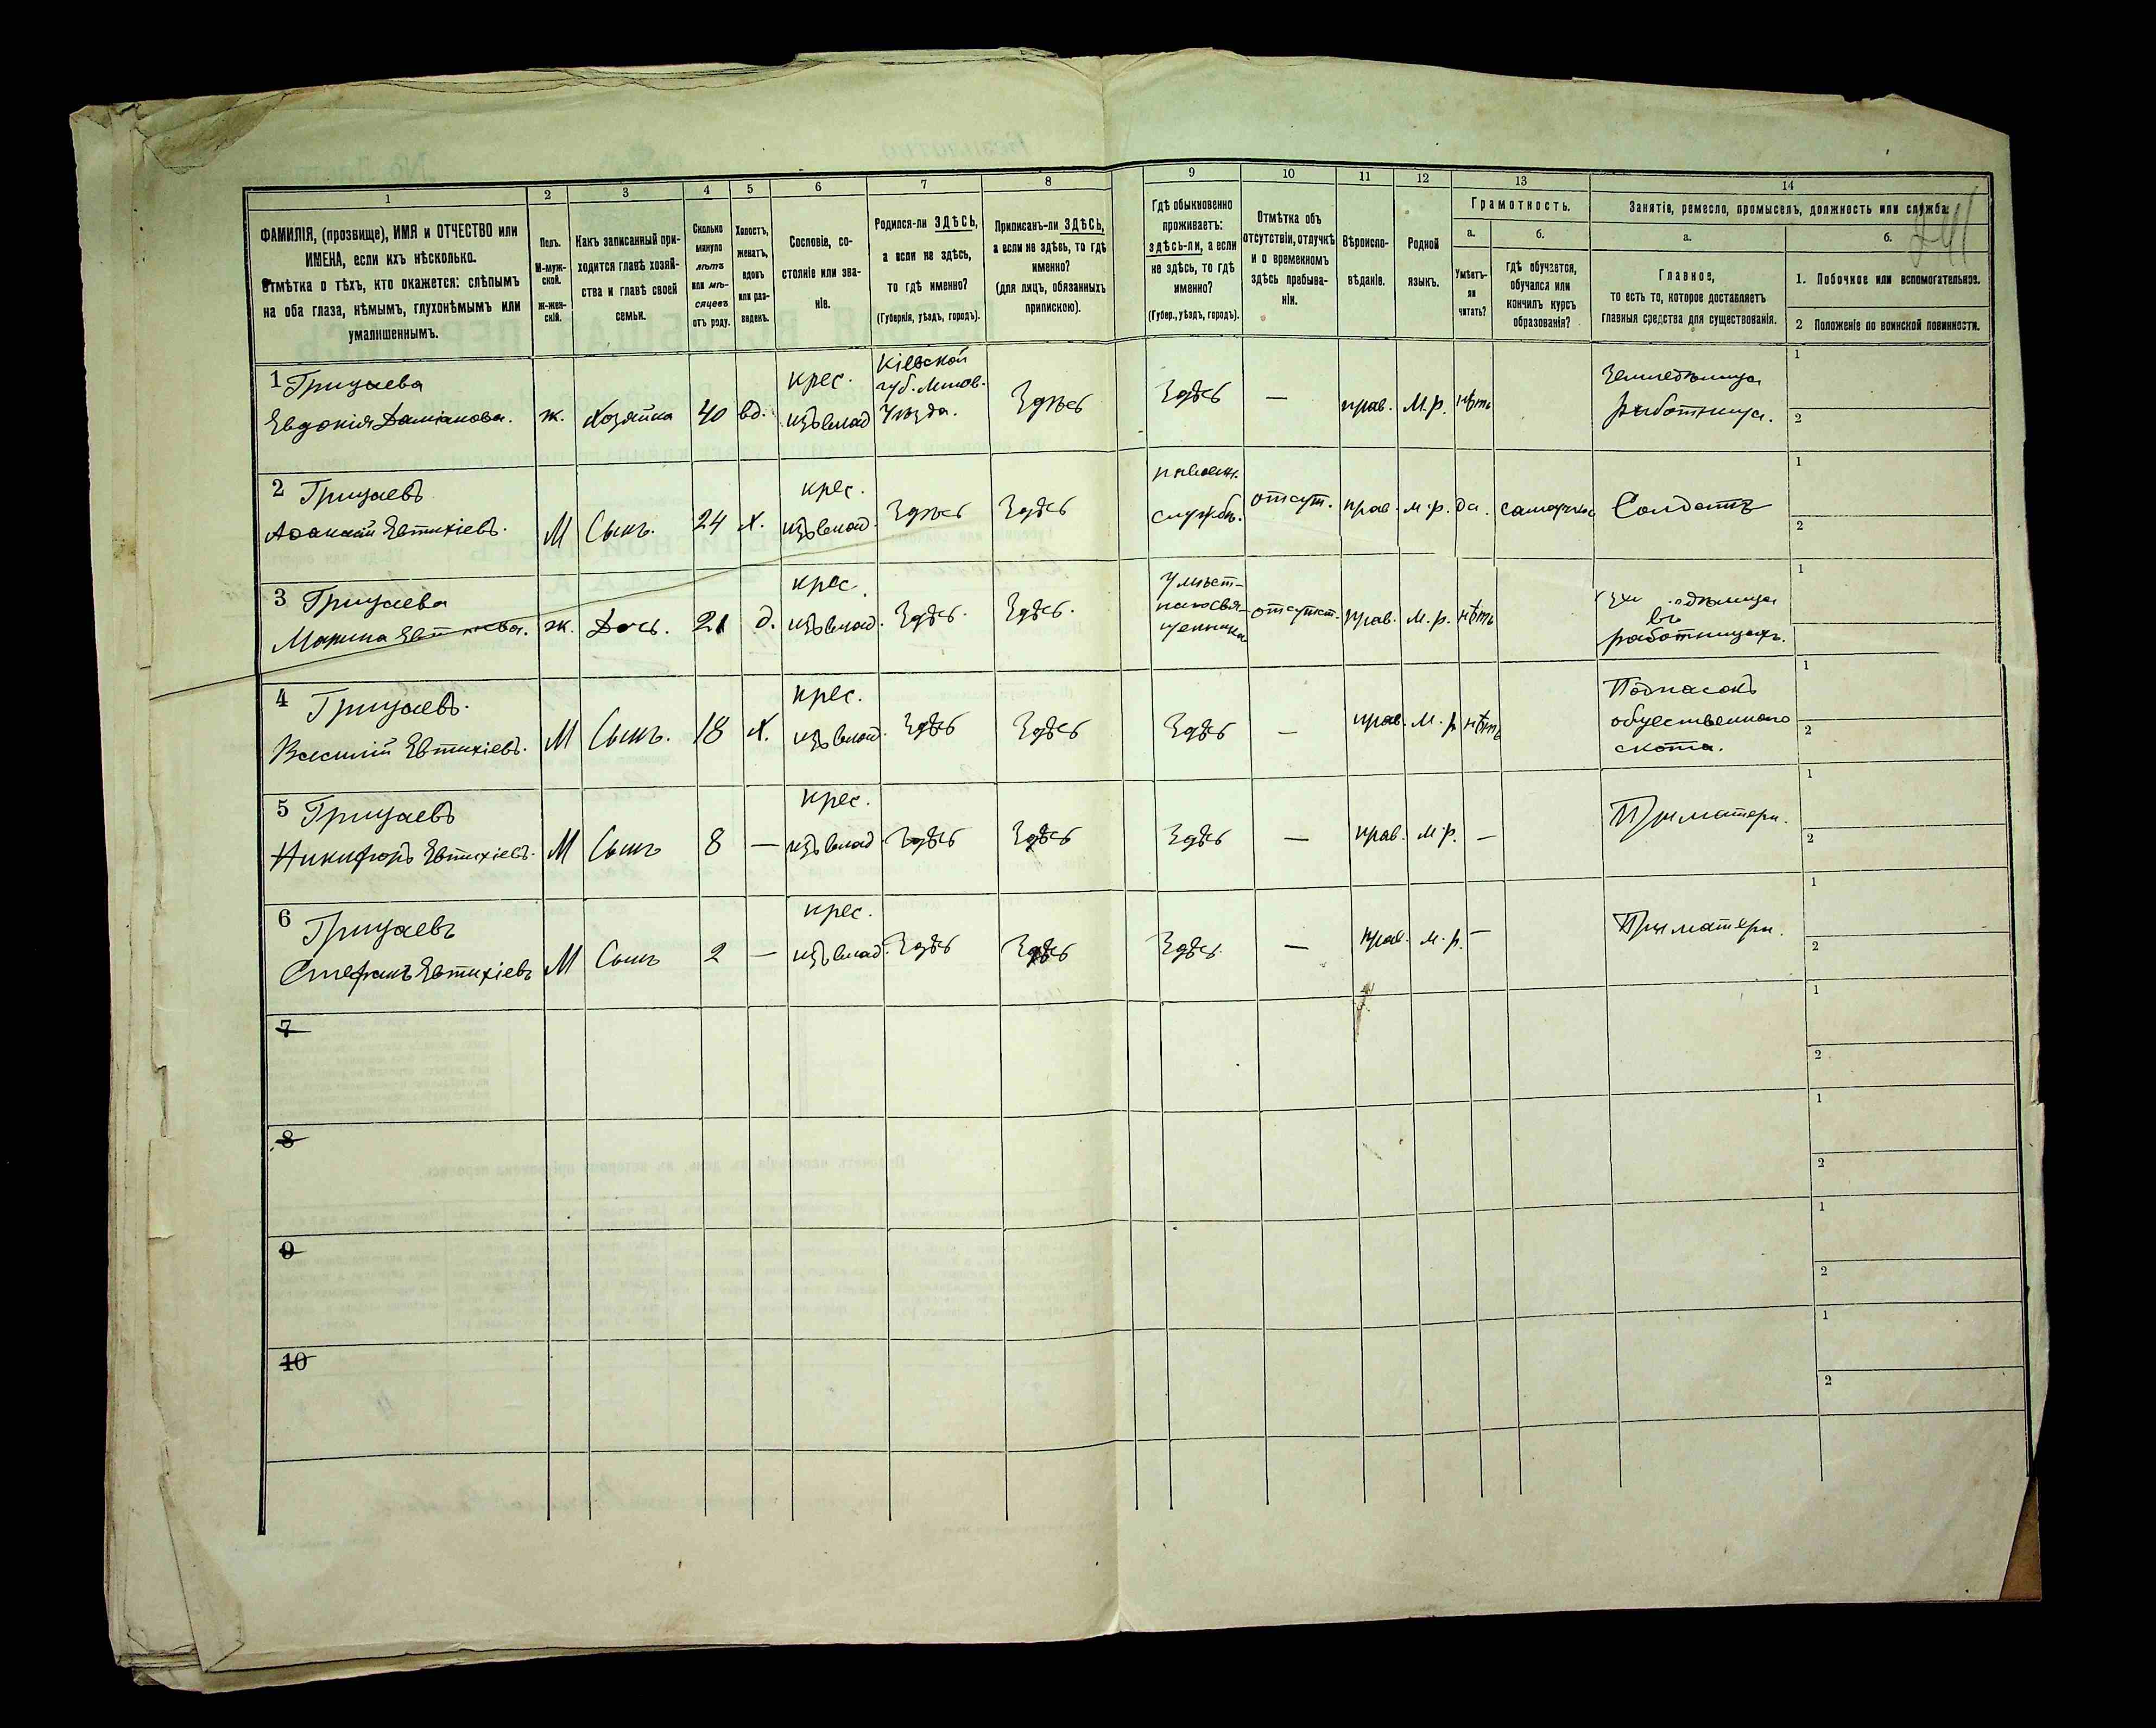 1 2 3 4 5 6 7 8 9 10 11 12 13 14
ФАМИЛІЯ, (прозвище), ИМЯ и ОТЧЕСТВО или
ИМЕНА, если ихъ нѣсколько.
Отмѣтка о тѣхъ, кто окажется: слѣпымъ
на оба глаза, нѣмымъ, глухонѣмымъ или
умалишеннымъ.
Полъ.
М-муж-
ской.
ж-жен-
скій.
Какъ записанный при-
ходится главѣ хозяй-
ства и главѣ своей
семьи.
Сколько
минуло
лѣтъ
или мѣ-
сяцевъ
отъ роду.
Холостъ,
женатъ,
вдовъ
или раз-
веденъ.
Сословіе, со-
стояніе или зва-
ніе.
Родился-ли ЗДѢСЬ,
а если не здѣсь,
то гдѣ именно?
(Губернія, уѣздъ, городъ).
Приписанъ-ли ЗДѢСЬ,
а если не здѣсь, то гдѣ
именно?
(для лицъ, обязанныхъ
припискою).
Гдѣ обыкновенно
проживаетъ:
здѣсь-ли, а если
не здѣсь, то гдѣ
именно?
(Губер., уѣздъ, городъ).
Отмѣтка объ
отсутствіи, отлучкѣ
и о временномъ
здѣсь пребыва-
ніи.
Вѣроиспо-
вѣданіе.
Родной
языкъ.
Грамотность.
а.
Умѣетъ-
ли
читать?
б.
гдѣ обучается,
обучался или
кончилъ курсъ
образованія?
Занятіе, ремесло, промыселъ, должность или служба.
а.
Главное,
то есть то, которое доставляетъ
главныя средства для существованія.
б.
1. Побочное или вспомогательное.
2 Положеніе по воинской повинности.
1 Грицаева
Евдокія Даміанова. ж. Хозяйка 40 вд.
крес.
изъ влад
Кіевской
губ. Липов.
Уѣзда.
Здѣсь Здѣсь — прав. М.р. нѣтъ
Земледѣлица
работница.
1
2
2 Грицаевъ
Евтихіевъ. М Сынъ. 24 х.
крес.
изъ влад.
Здѣсь Здѣсь
службѣ.
отсут. прав. м.р. да. самоучка Солдатъ
1
2
3 Грицаева
Марина Евтихіева. ж. Дочь. 21 д.
крес.
изъ влад.
Здѣсь. Здѣсь.
отсутст. прав. М.р. нѣтъ
въ
работницахъ.
1
4 Грицаевъ.
Василій Евтихіевъ. М Сынъ. 18 х.
крес.
изъ влад.
Здѣсь Здѣсь Здѣсь — прав. м.р нѣтъ
Подпасокъ
общественнаго
скота.
1
2
5 Грицаевъ
Никифоръ Евтихіевъ. М Сынъ 8 —
крес.
изъ влад.
Здѣсь Здѣсь Здѣсь — прав. м.р. —
При матери.
1
2
6 Грицаевъ
Стефанъ Евтихіевъ М Сынъ 2 —
крес.
изъ влад.
Здѣсь Здѣсь Здѣсь. — прав. м.р. —
При матери.
1
2
7
1
2
8
1
2
9
1
2
10
1
2